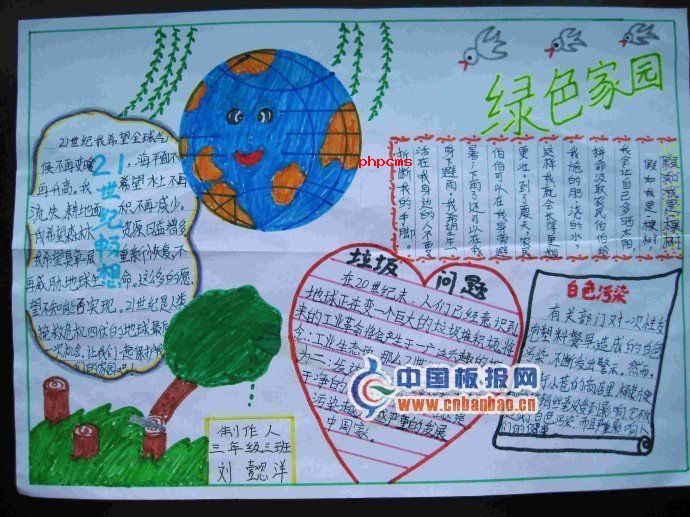 绿色家园
假如我是一棵树
假如我是一棵树
我会让自己多晒太阳
拼命汲取农民伯伯给
我施的肥、浇的水，
这样我就会长得更粗
更壮。到了夏天，农民
伯伯可以在我身旁避
暑，下雨了还可以在我
身下避雨。我希望生
活在我身边的人不要
折断我的手脚。
phpcms
21世纪畅想
21世纪我希望全球气
候不再变暖，海平面不
再升高。我希望水土不再
流失，耕地面积不再减少。
我希望森林资源日益增多
我希望臭氧层重新恢复，不
再威胁地球生命。这么多的愿
望不知能否实现。21世纪是人类
挽救危机四伏的地球最后
一次机会，让我们一起保护我
们的家园吧！
垃圾问题
在20世纪末，人们已经意识到
地球正在变一个巨大的垃圾堆积场。将
来的工业革命将会产生于一个
念：工业生态学。那么21世
为二：发达
干净的
污染越来越严重的发展
中国家。
白色污染
有关部门对一次性发
泡塑料餐具造成的白色
污染，不断发出警示。然而，
们的健康。
制作人
三年级三班
刘懿洋
中国板报网
www.cnbanbao.cn